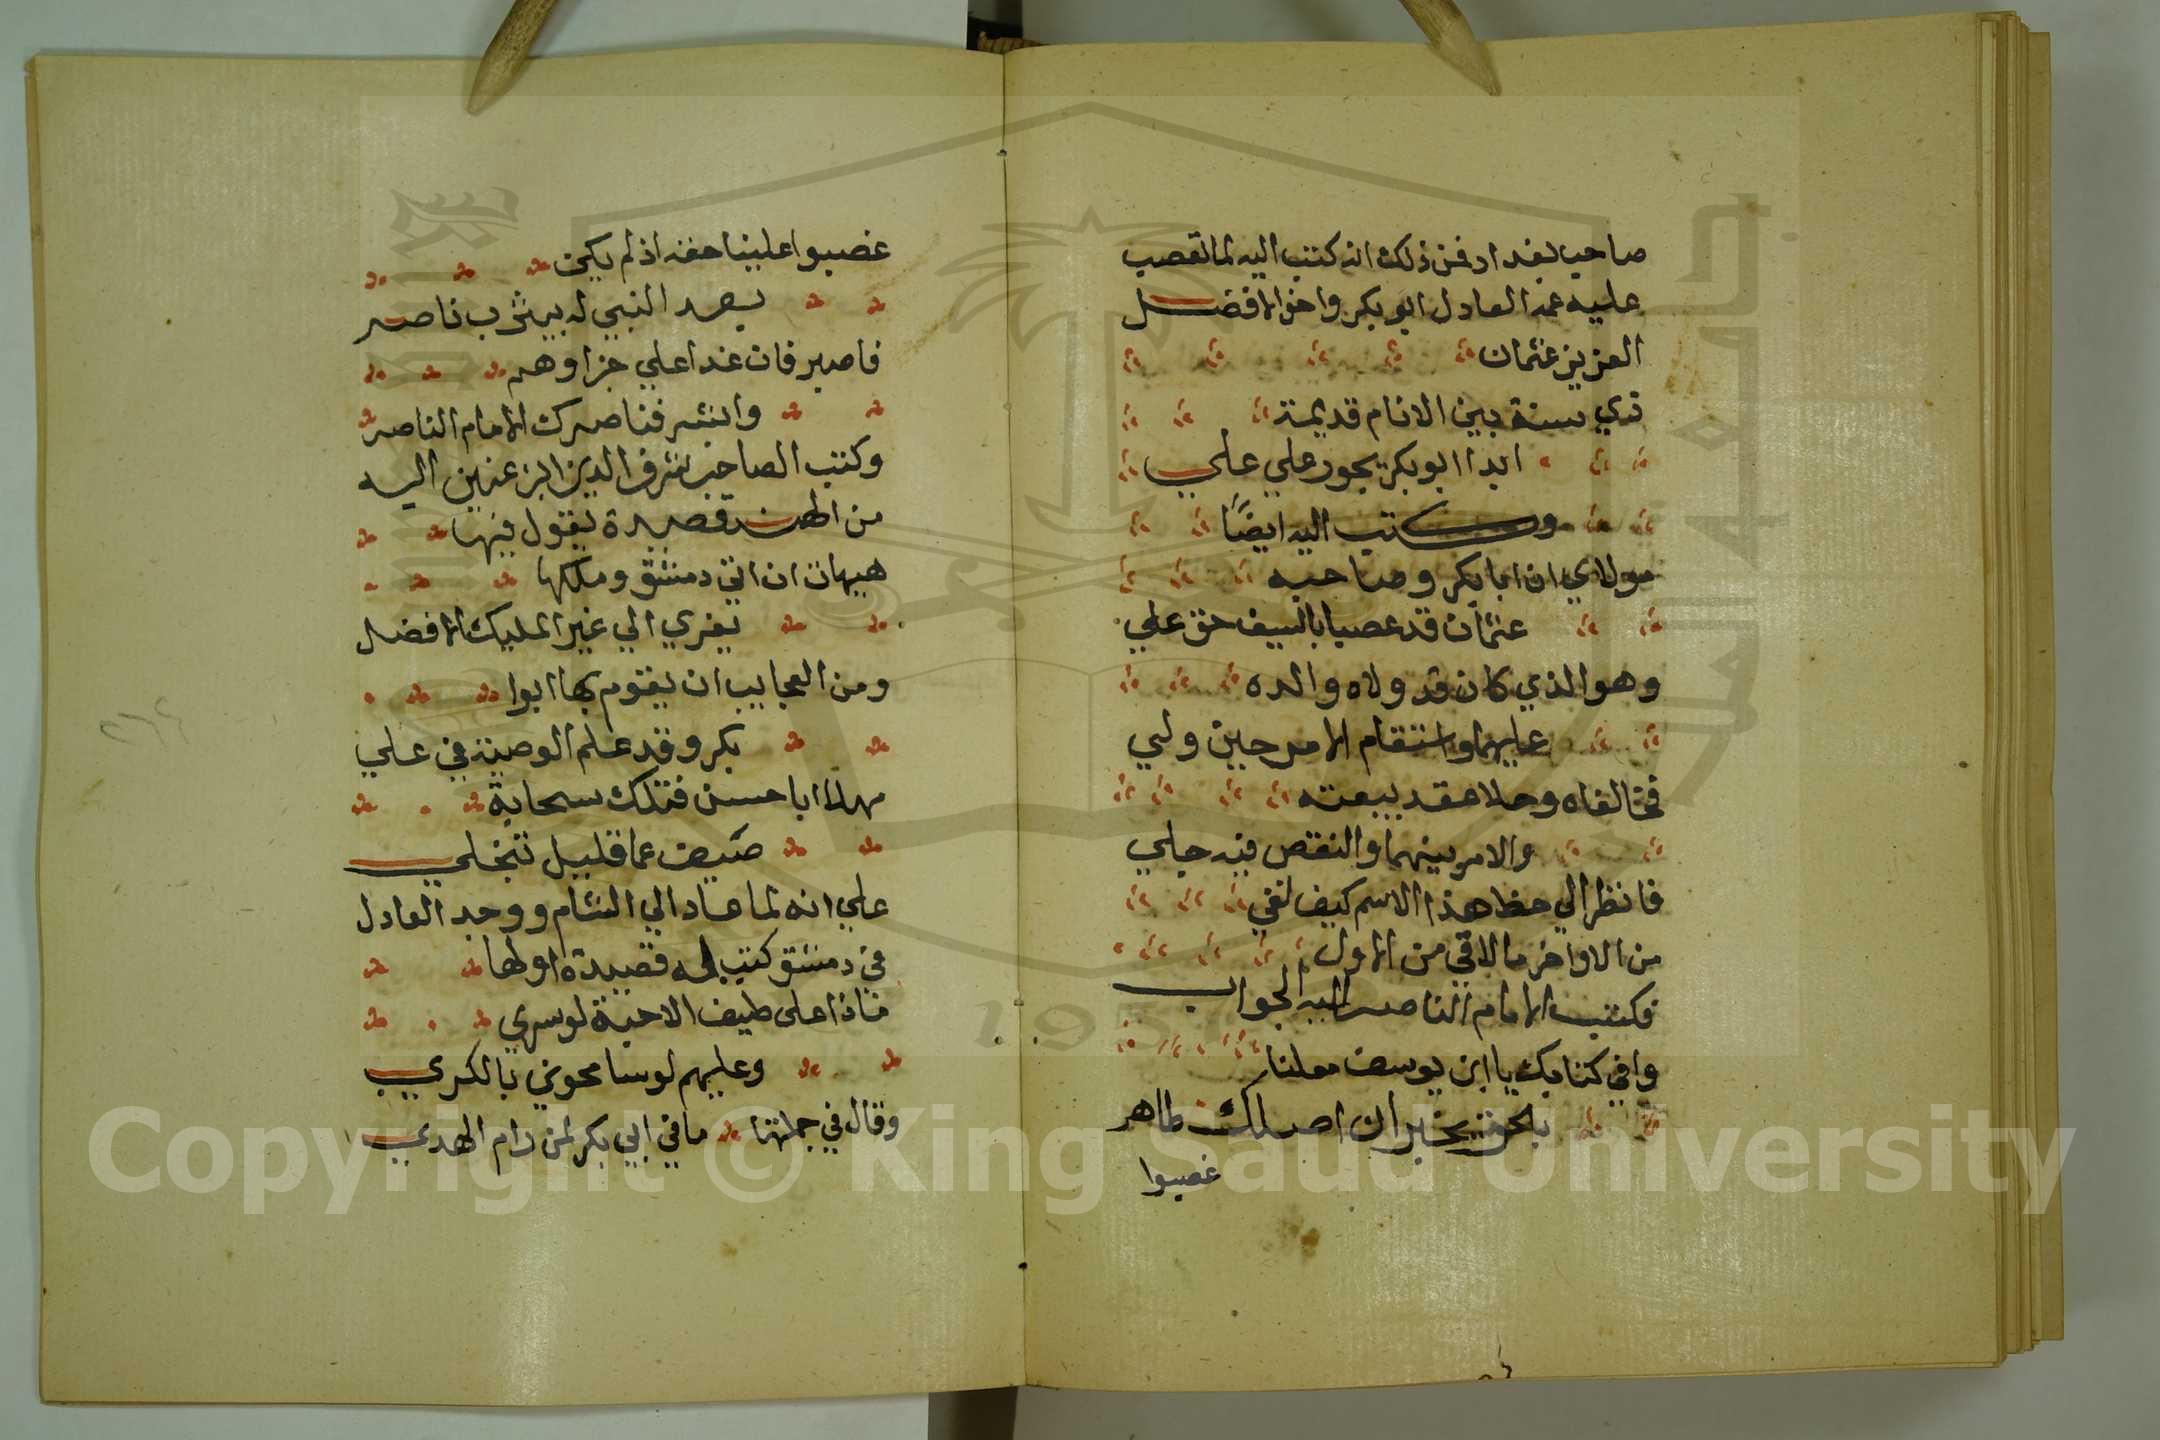 صاحب بغداد فمن ذلك انه كتب اليه لما تعصب
عليه عمه العادل ابو بكر واخوه الافضل
العزيز عثمان
ذي سنة بين الانام قديمة
ابدا ابو بكر يجور علي علي
وكتب اليه ايضًا
مولاي ان ابا بكر وصاحبه
عثمان قد غصبا بالسيف حق علي
وهو الذي كان قد ولاه والده
عليهما واستقام الامر حين ولي
فخالفاه وحلا عقد بيعته
والامر بينهما والنقص فيه جلي
فانظر الي حظ هذا الاسم كيف لقي
من الاواخر ما لاقي من الاول
فكتب الامام الناصر اليه الجواب
وافي كتابك يا ابن يوسف معلنا
بالحق يخبر ان اصلك طاهر
غصبوا
غصبوا عليا حقه اذ لم يكن
بعد النبي له بيثرب ناصر
فاصبر فان غدا علي جزاوهم
وابشر فناصرك الامام الناصر
وكتب الصاحب شرف الدين ابن عنين اليه
من الهند قصيدة يقول فيها
هيهات ان اتي دمشق وملكها
يعزي الي غير المليك الافضل
ومن العجايب ان يقوم بها ابوا
بكر وقد علم الوصية في علي
مهلا ابا حسن فتلك سحابة
صيف عما قليل تنجلي
علي انه لما عاد الي الشام ووجد العادل
في دمشق كتب له قصيدة اولها
ماذا علي طيف الاحبة لو سري
وعليهم لو سامحوني بالكري
وقال في جملتها ما في ابي بكر لمن رام الهدي
Copyright © King Saud University
1957